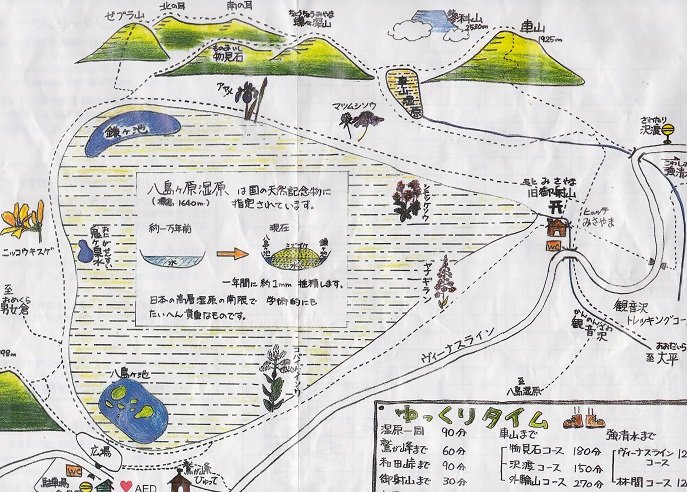 ゼブラ山
北の耳
南の耳
ちょうちょうみやま
蝶々深山
ものみいし
物見石
蓼科山
2530m
車山
1925m
車山湿原
アヤメ
マツムシソウ
さわたり
沢渡
強清水
鎌ヶ池
八島ヶ原湿原 は国の天然記念物に
(標高 1640m) 指定されています。
約一万年前
現在
水
一年間に約1mm 堆積します。
日本の高層湿原の南限で 学術的にも
たいへん貴重なものです。
シモツケソウ
もと みさやま
旧御射山
ヒュッテ
みさやま
WC
ニッコウキスゲ
おにがせんすい
鬼ヶ泉水
至
おめくら
男女倉
ヤナギラン
ヴィーナスライン
観音沢
トレッキングコー
かんのんざわ
観音沢
おおだいら
至 大平
至
八島湿原
98m
コバイケイソウ
八島ヶ池
広場
WC
駐車場
AED
鷲が峰
ひゅって
ゆっくりタイム
湿原一周 90分
鷲が峰まで 60分
和田峠まで 90分
御射山まで 30分
車山まで
物見石コース 180分
沢渡コース 150分
外輪山コース 270分
強清水まで
ヴィーナスライン 12
コース
林間コース 12